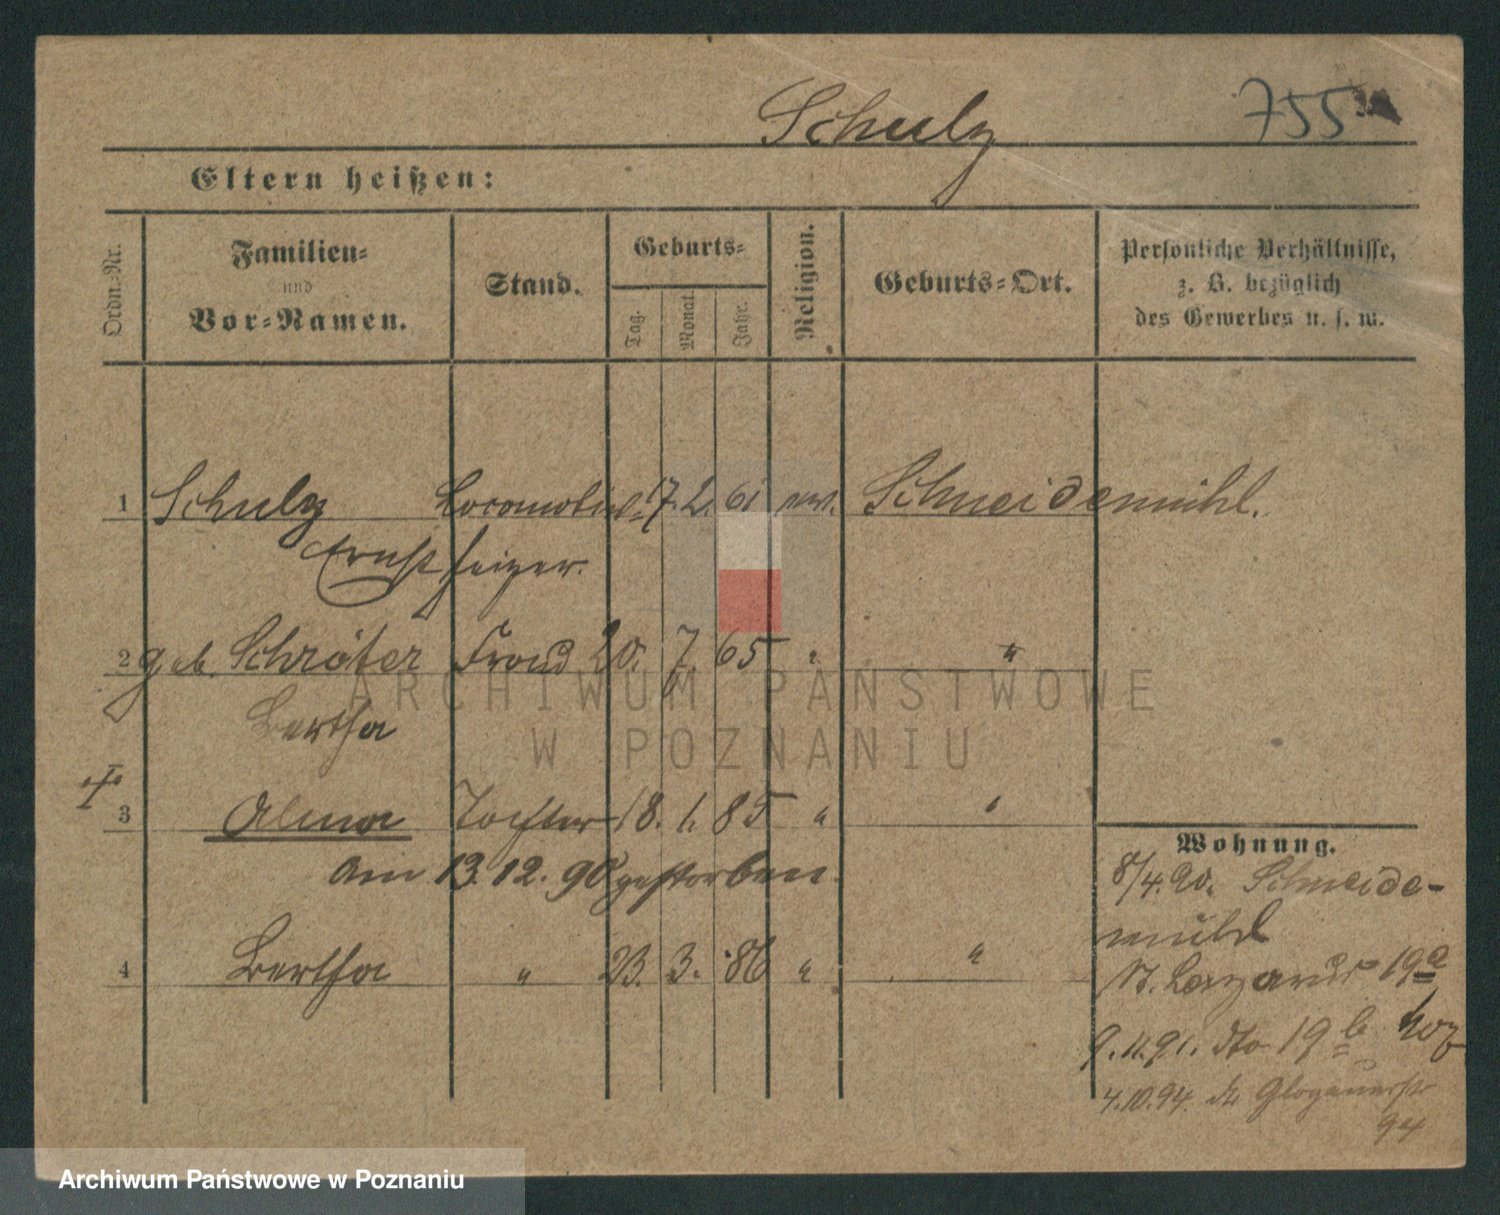 Schulz 755
Eltern heißen:
Ordn.-Nr.
Familien-
und
Vor-Namen.
Stand.
Geburts-
Tag.
Monat.
Jahr.
Religion.
Geburts-Ort.
Persönliche Verhältnisse,
z. B. bezüglich
des Gewerbes u. s. w.
1 Schulz Locomotiv- 17. 2. 61 ev. Schneidemühl.
Ernst heizer.
2 geb. Schröter Frau 20. 7. 65 " "
Bertha
3 Alma Tochter 18. 1. 85 " "
am 13. 12. 90 gestorben.
4 Bertha " 23. 3. 86 " "
Wohnung.
8/4. 90. Schneide-
mühl
St. Lazarus 19a
9. 11. 91. dto 19b
4. 10. 94. Glogauerstr
94
ARCHIWUM PAŃSTWOWE
W POZNANIU
Archiwum Państwowe w Poznaniu